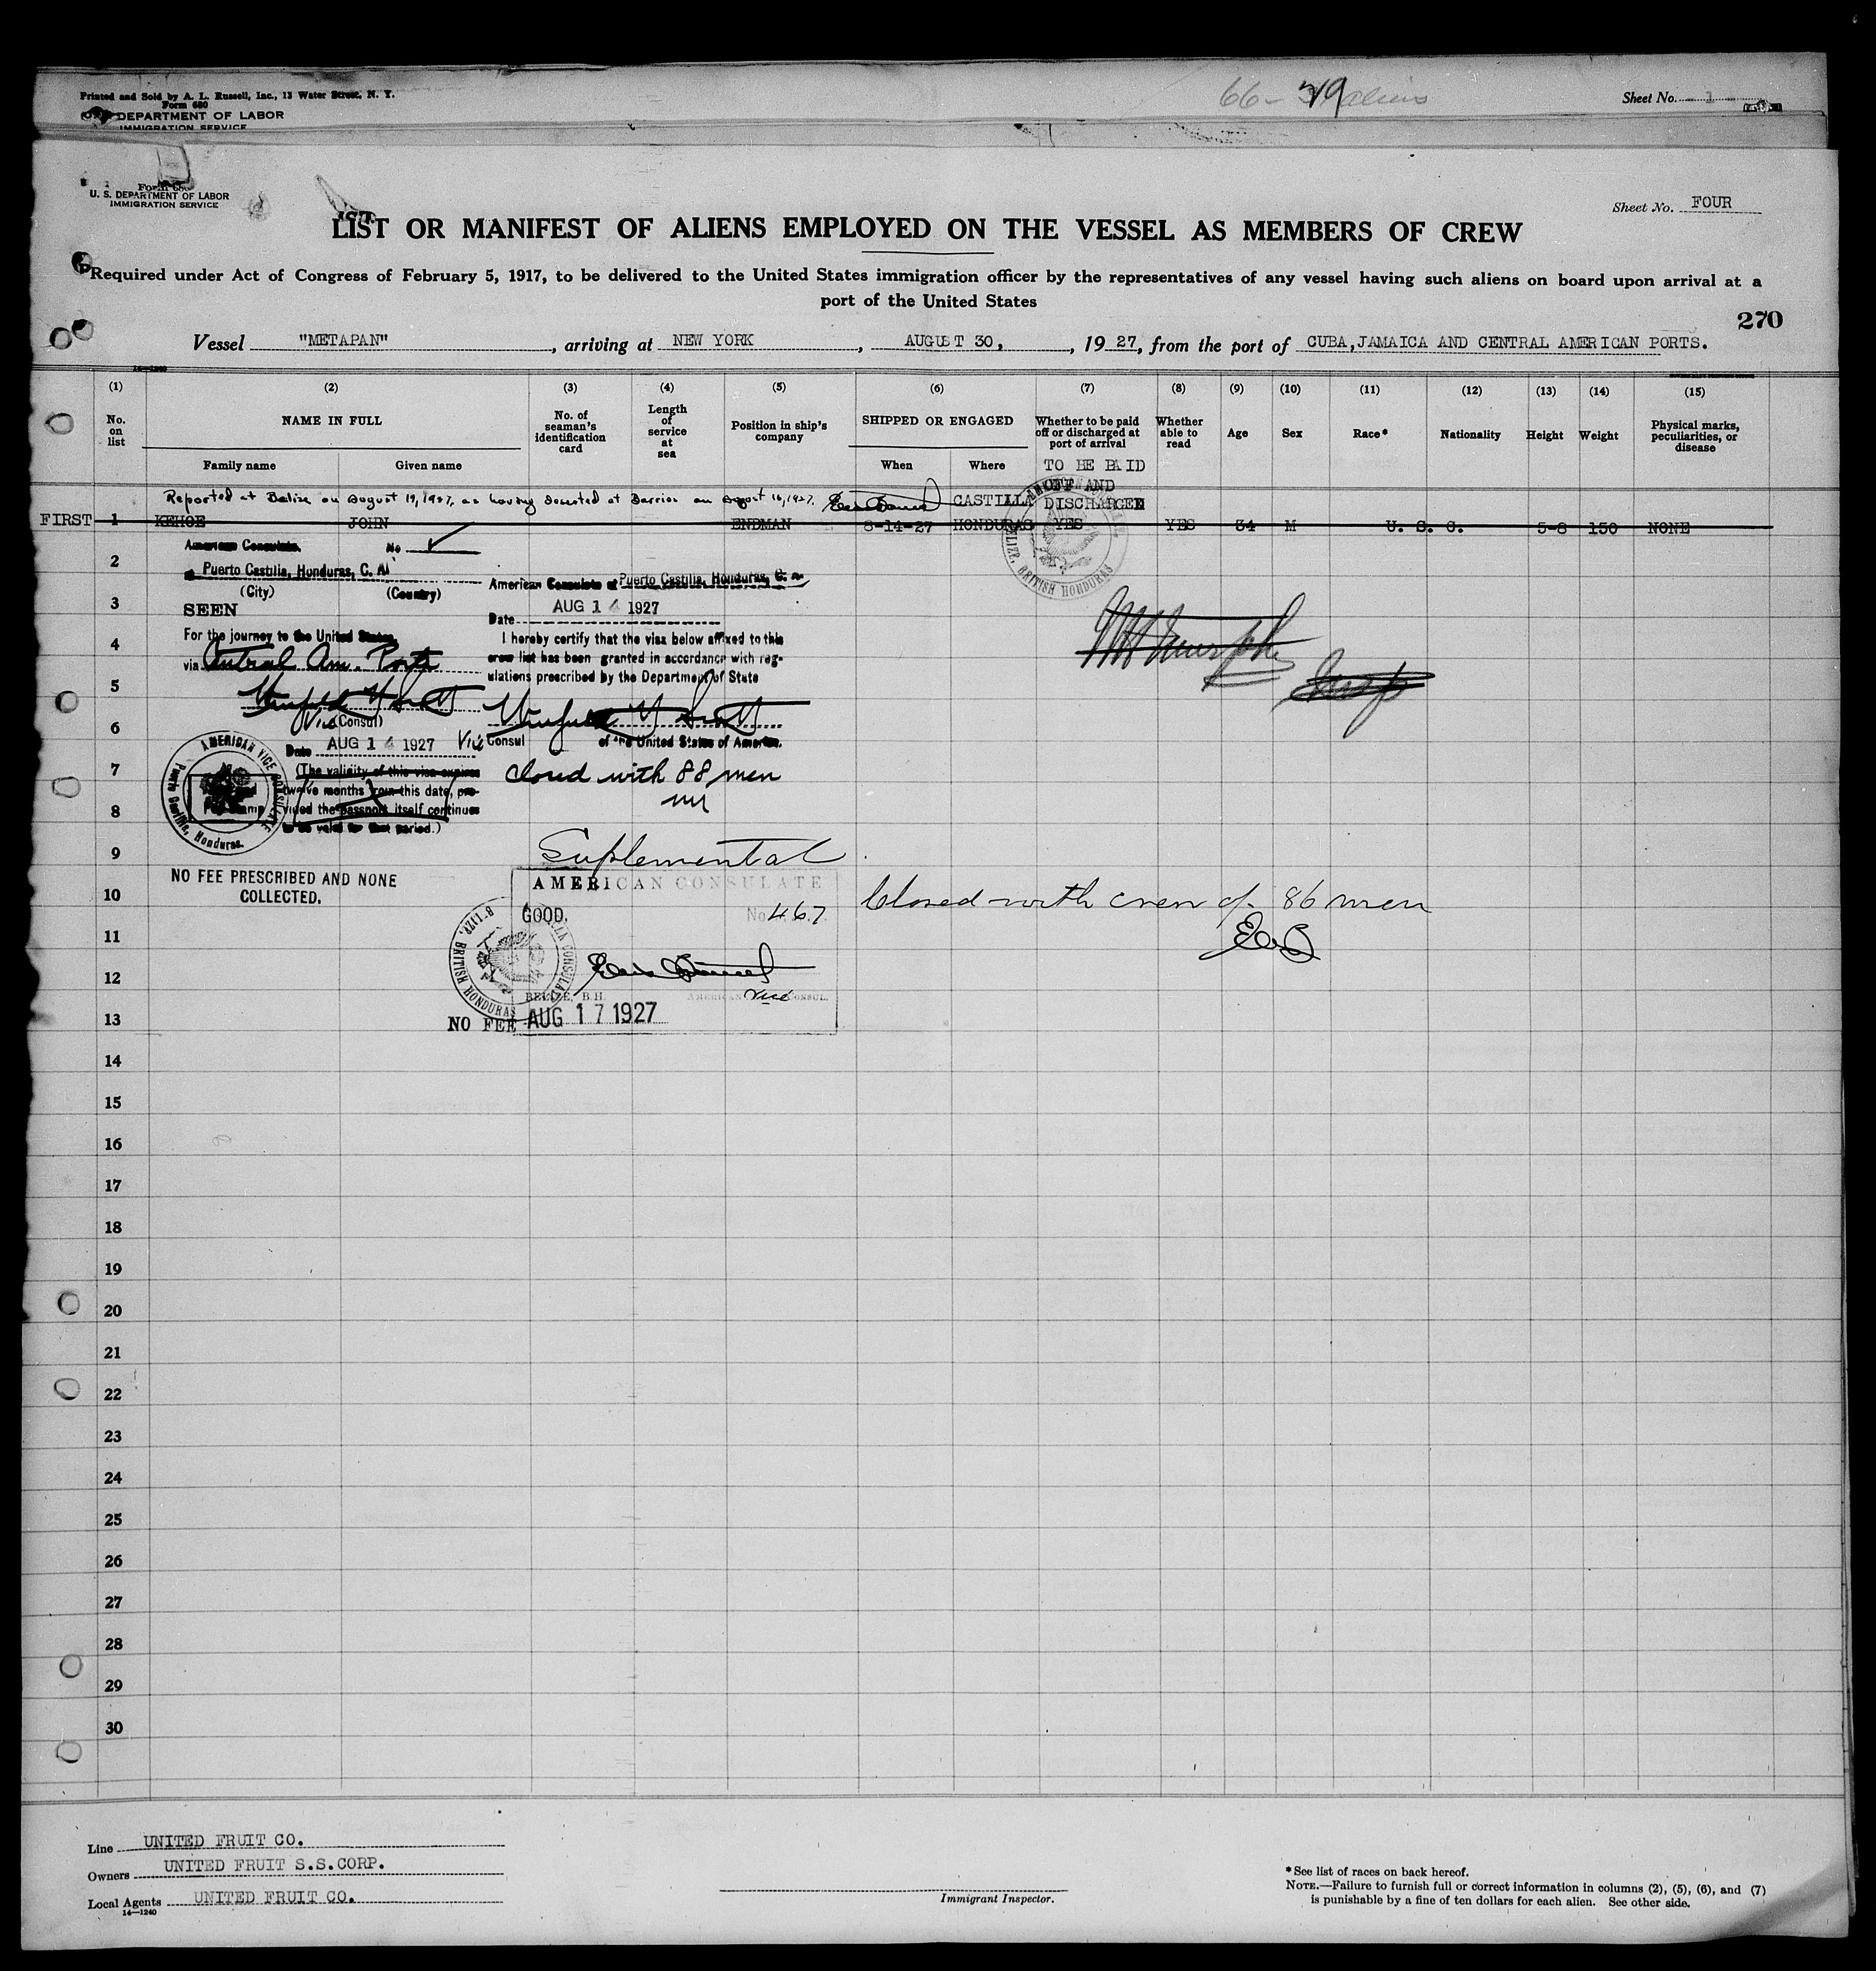 Printed and Sold by A. L. Russell, Inc., 13 Water Street, N. Y.
Form 680
DEPARTMENT OF LABOR
IMMIGRATION SERVICE
66- aliens
Sheet No. 1
U. S. DEPARTMENT OF LABOR
IMMIGRATION SERVICE
Sheet No. FOUR
LIST OR MANIFEST OF ALIENS EMPLOYED ON THE VESSEL AS MEMBERS OF CREW
Required under Act of Congress of February 5, 1917, to be delivered to the United States immigration officer by the representatives of any vessel having such aliens on board upon arrival at a
port of the United States
270
Vessel "METAPAN", arriving at NEW YORK, AUGUST 30, 1927, from the port of CUBA,JAMAICA AND CENTRAL AMERICAN PORTS.
14—1240
(1) (2) (3) (4) (5) (6) (7) (8) (9) (10) (11) (12) (13) (14) (15)
No. on list
NAME IN FULL
Family name Given name
No. of seaman's identification card
Length of service at sea
Position in ship's company
SHIPPED OR ENGAGED
When Where
Whether to be paid off or discharged at port of arrival
Whether able to read
Age Sex Race* Nationality Height Weight
Physical marks, peculiarities, or disease
TO BE PAID
OFF AND
DISCHARGED
Reported at Belize on August 19, 1927, as having deserted at Barrios on August 16, 1927.
CASTILLA
FIRST 1 KEHOE JOHN ENDMAN 8-14-27 HONDURAS YES YES 34 M U. S. C. 5-8 150 NONE
BELIZE, BRITISH HONDURAS
American Consulate. No
at Puerto Castilla, Honduras, C. A.
(City) (Country)
SEEN
For the journey to the United States,
via Central Am. Ports
Vice (Consul)
Date AUG 14 1927
(The validity of this visa expires
twelve months from this date, pro-
vided the passport itself continues
to be valid for that period.)
AMERICAN VICE CONSULATE
Puerto Castilla, Honduras.
NO FEE PRESCRIBED AND NONE
COLLECTED.
American Consulate at Puerto Castilla, Honduras, C. A.
Date AUG 14 1927
I hereby certify that the visa below affixed to this
crew list has been granted in accordance with reg-
ulations prescribed by the Department of State
Vice Consul of the United States of America.
Closed with 88 men
Suplemental
AMERICAN CONSULATE
GOOD. No. 467
BELIZE, BRITISH HONDURAS
BELIZE, B.H. AMERICAN Vice CONSUL.
NO FEE AUG 17 1927
Closed with crew of 86 men
2
3
4
5
6
7
8
9
10
11
12
13
14
15
16
17
18
19
20
21
22
23
24
25
26
27
28
29
30
Line UNITED FRUIT CO.
Owners UNITED FRUIT S.S.CORP.
Local Agents UNITED FRUIT CO.
14—1240
Immigrant Inspector.
* See list of races on back hereof.
NOTE.—Failure to furnish full or correct information in columns (2), (5), (6), and (7)
is punishable by a fine of ten dollars for each alien. See other side.